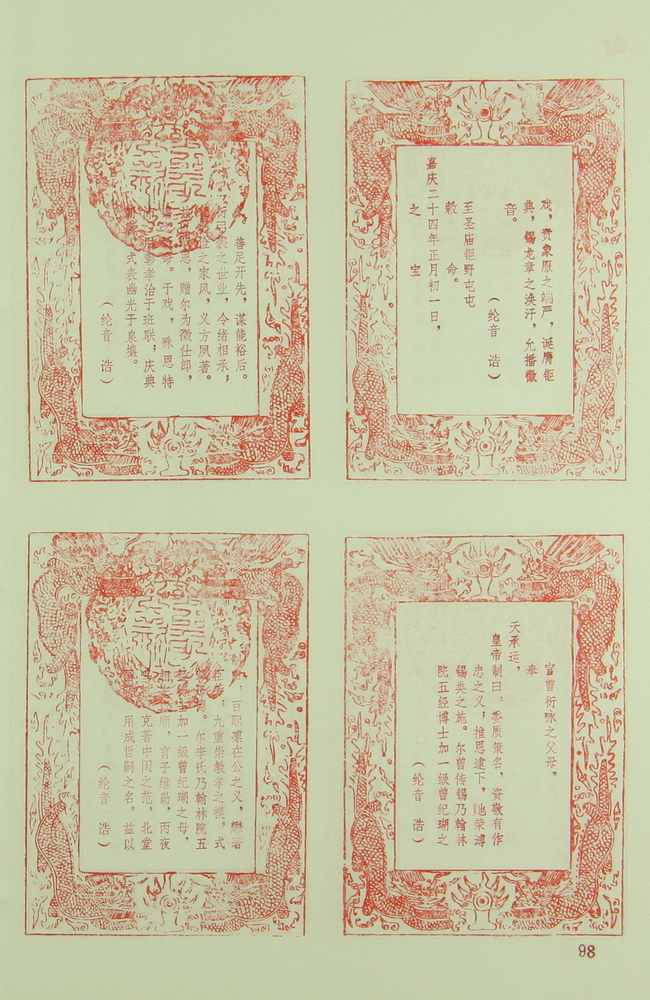 戏，贲象服之端严，诞膺钜
典，锡龙章之涣汗，允播徽
音。
（纶音 诰）
至圣庙钜野屯屯
毅 命。
嘉庆二十四年正月初一日，
之 宝
善足开先，谋能裕后。
裘之世业，令绪相承；
之家风，义方夙著。
恩，赠尔为徵仕郎，
。于戏，殊恩特
彰孝治于班联；庆典
式表幽光于泉壤。
（纶音 诰）
官曾衍咏之父母。
奉
天承运，
皇帝制曰：委质策名，资敬有作
忠之义；推恩逮下，貤荣溥
锡类之施。尔曾传锡乃翰林
院五经博士加一级曾纪瑚之
（纶音 诰）
，百职凛在公之义，懋著
，九重崇教孝之模，式
德。尔李氏乃翰林院五
加一级曾纪瑚之母，
顺，育子维勤，丙夜
克著中闺之范，北堂
用成哲嗣之名。兹以
（纶音 诰）
98